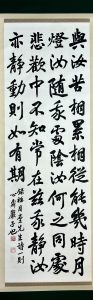 與汝苦相周相從能幾時月
燈汝隨我處陰汝何之同處
悲歡中不知常在茲我靜汝
亦靜動則如有期
先生詩一則